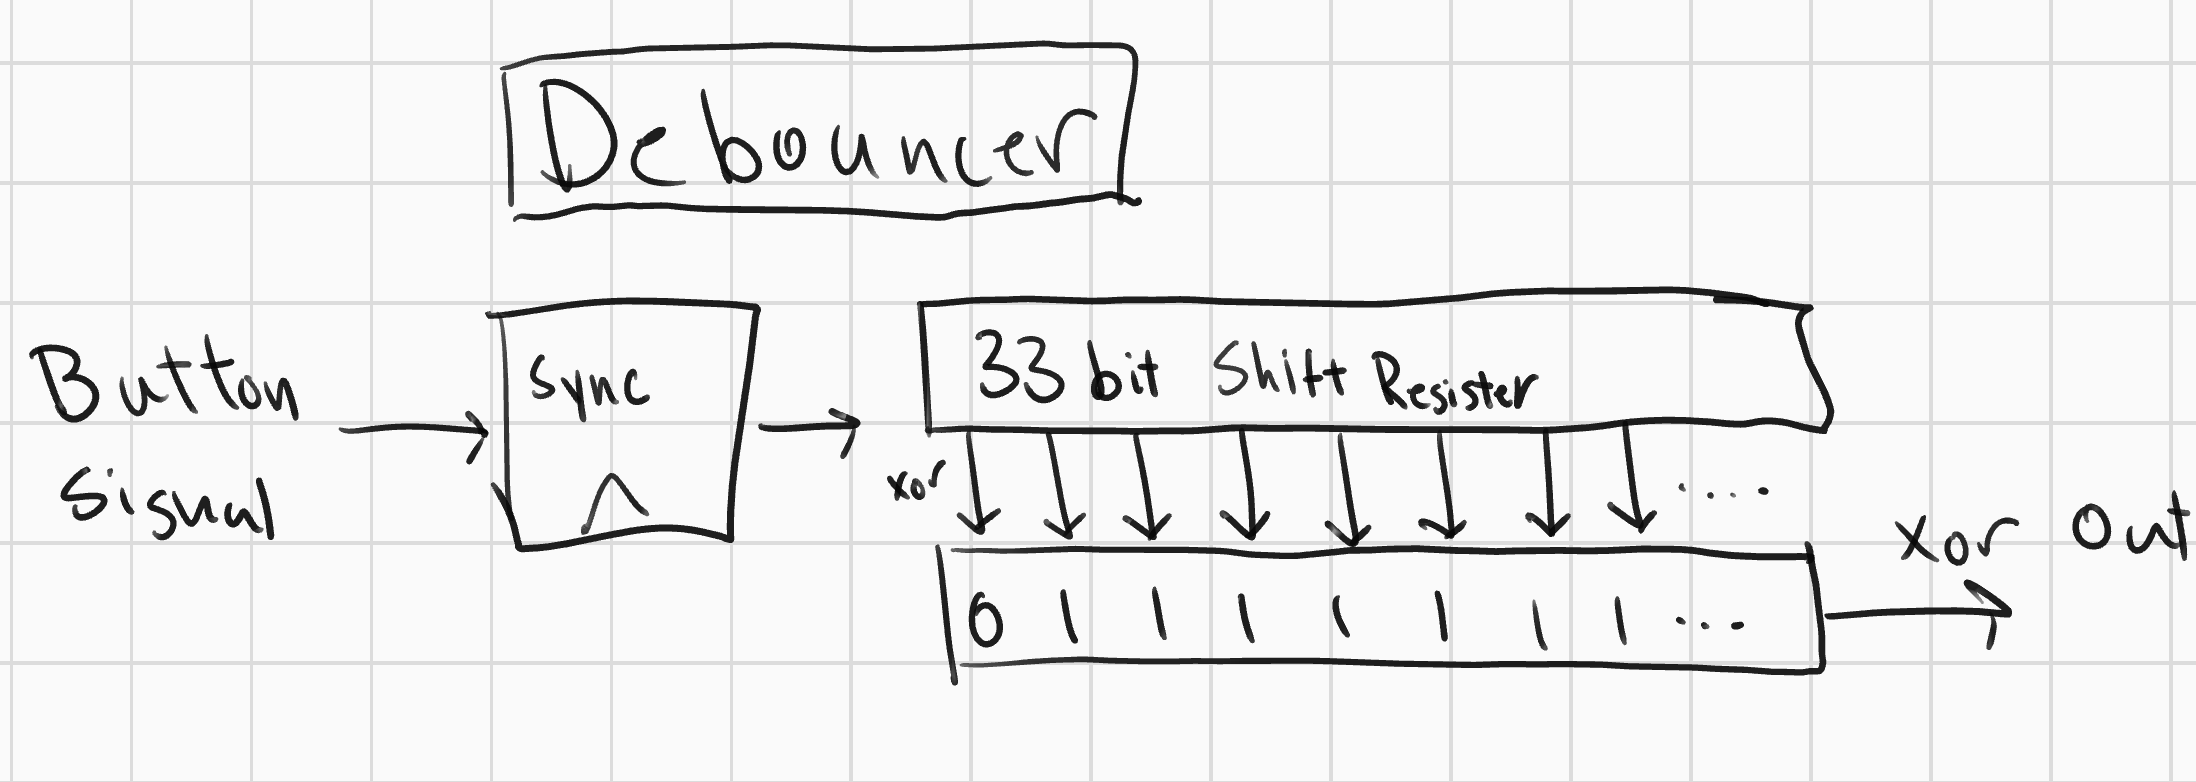 Debouncer
Button
Signal
Sync
33 bit Shift Register
xor
0 1 1 1 1 1 1 1 ...
xor Out